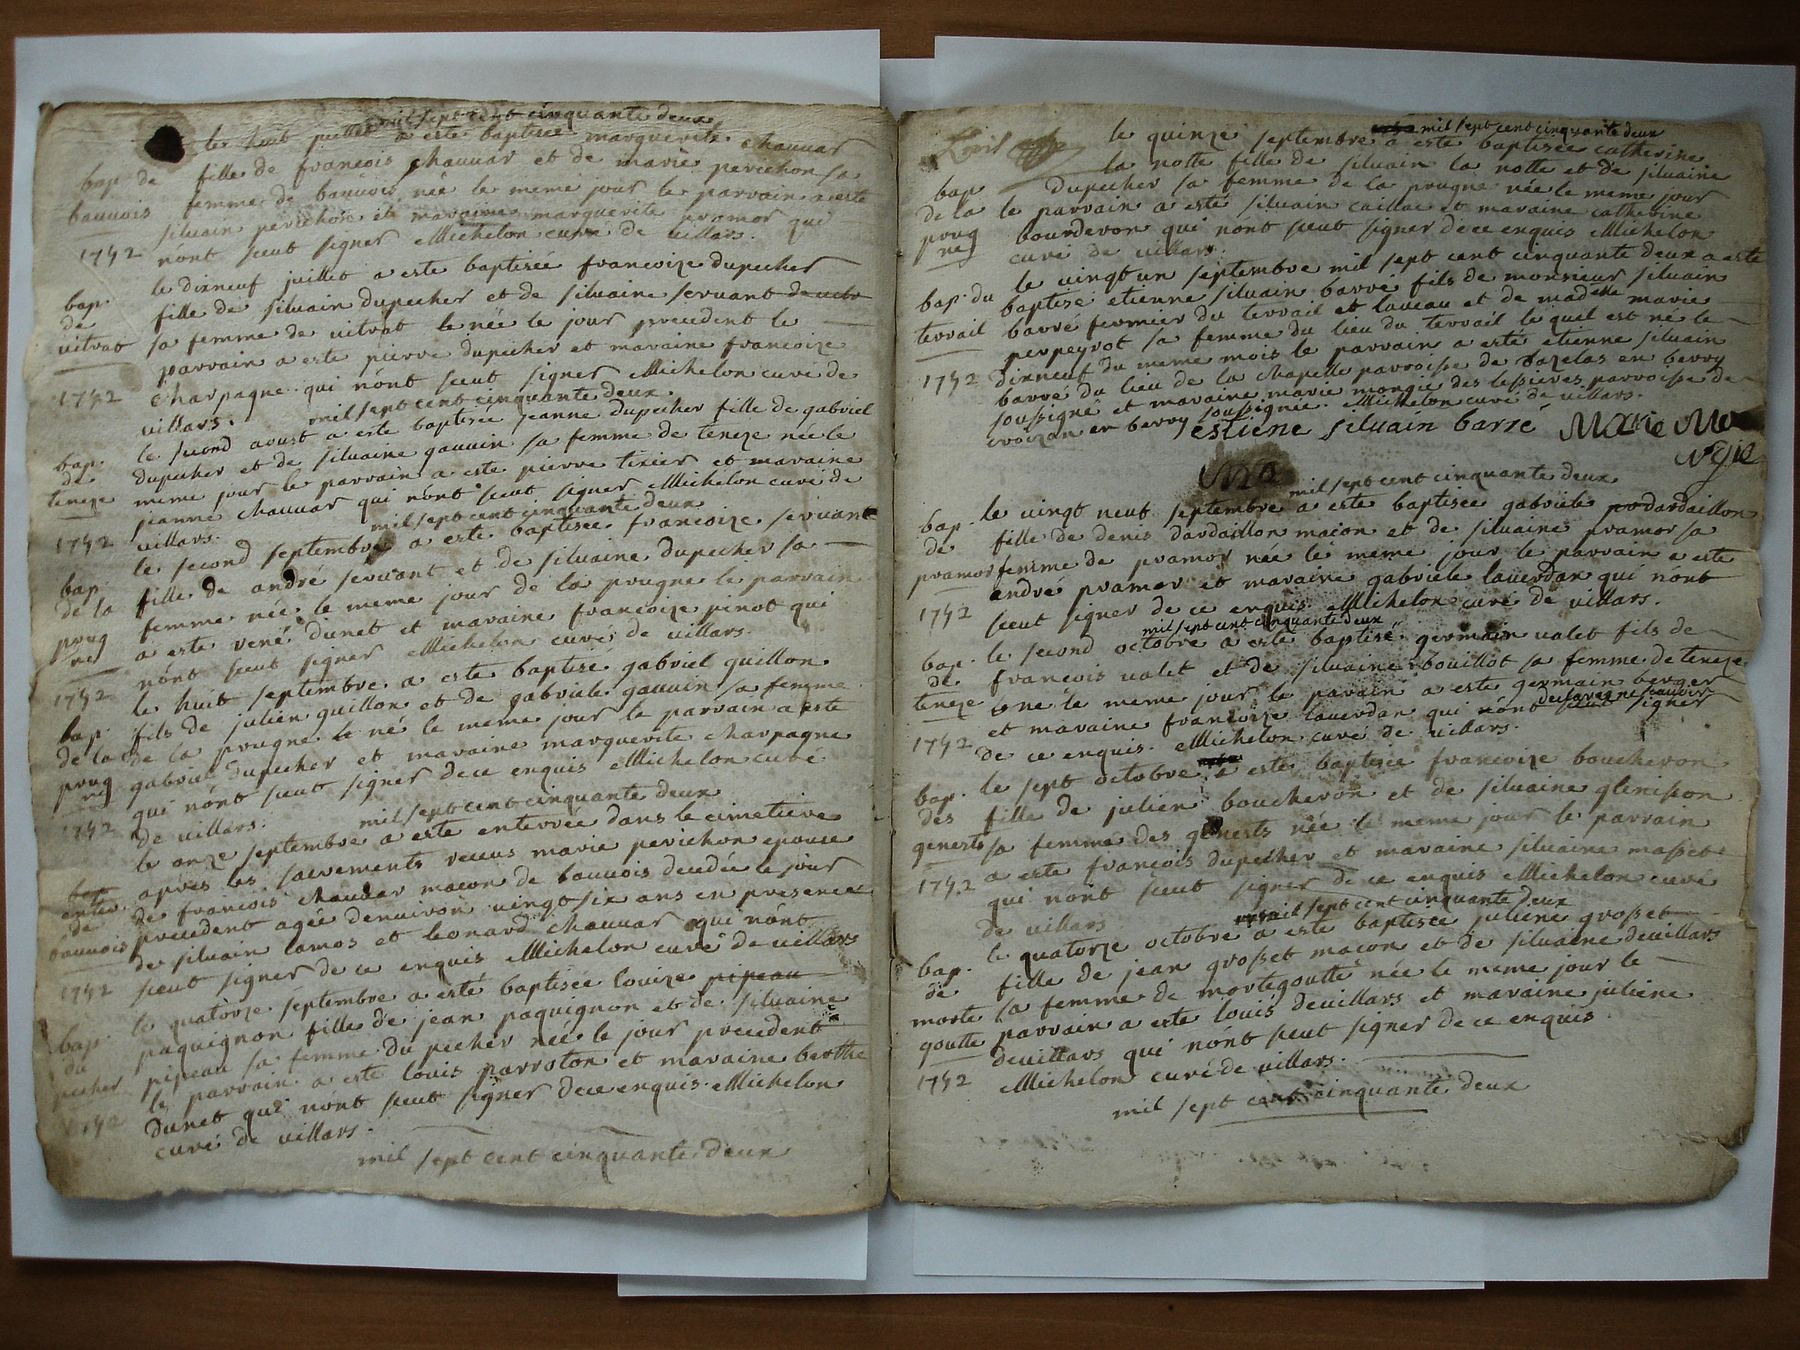 mil sept cent cinquante deux
le huit juillet a este baptisée marguerite chauvar
bap. de
bauvois
1752
fille de francois chauvar et de marie perichon sa
femme de bauvois née le meme jour le parrain a este
siluain perichon et maraine marguerite pramor qui
nont sceut signer Michelon curé de villars.
bap.
de
vitrat
1752
le dixneuf juillet a este baptisée francoize dupecher
fille de siluain dupecher et de siluaine servant
sa femme de vitrat le née le jour precedent le
parrain a este pierre dupecher et maraine francoize
Charpagne qui nont sceut signer Michelon curé de
villars.
mil sept cent cinquante deux.
bap.
de
teneze
1752
le second aoust a este baptisée jeanne dupecher fille de gabriel
dupecher et de siluaine gauvin sa femme de teneze née le
meme jour le parrain a este pierre tixier et maraine
jeanne chauvar qui nont sceut signer Michelon curé de
villars.
mil sept cent cinquante deux
bap.
de la
proug
ne
1752
le second septembre a este baptisée francoize servant
fille de andré servant et de siluaine dupecher sa
femme née le meme jour de la prugne le parrain
a este rené dunet et maraine francoize pinot qui
nont sceut signer Michelon curé de villars.
bap.
de la
proug
ne
1752
le huit septembre a este baptisé gabriel guillon
fils de julien guillon et de gabriele gauvin sa femme
de la prugne le né le meme jour le parrain a este
gabriel dupecher et maraine marguerite charpagne
qui nont sceut signer de ce enquis Michelon curé
de villars.
mil sept cent cinquante deux
enter.
de
bauvois
1752
le onze septembre a este enterrée dans le cimetiere
apres les sacrements receus marie perichon epouse
de francois chauvar macon de bauvois decedée le jour
precedent agée denviron vingt six ans en presence
de siluain lamos et leonard chauvar qui nont
sceut signer de ce enquis Michelon curé de villars
bap.
du
pecher
1752
le quatorze septembre a esté baptisée louize pipeau
paquignon fille de jean paquignon et de siluaine
pipeau sa femme du pecher née le jour precedent
le parrain a este louis parroton et maraine berthe
dunet qui nont sceut signer de ce enquis Michelon
curé de villars.
mil sept cent cinquante deux
mil sept cent cinquante deux
bap.
de la
proug
ne
le quinze septembre a este baptisée catherine
la notte fille de siluain la notte et de siluaine
dupecher sa femme de la prugne née le meme jour
le parrain a esté siluain caillac et maraine catherine
bourderon qui nont sceut signer de ce enquis Michelon
curé de villars.
bap. du
terrail
1752
le vingt un septembre mil sept cent cinquante deux a este
baptisé etienne siluain barré fils de monsieur siluain
barré fermier du terrail et laveau et de madelle marie
perpeyrot sa femme du lieu du terrail lequel est né le
dixneuf du meme mois le parrain a esté etienne siluain
barré du lieu de la chapelle parroisse de bazelas en berry
soussigné et maraine marie mongie des lessieres parroisse de
croizan en berry soussignée. Michelon curé de villars.
estiéne siluain barré
Marie Mo
ngie
mil sept cent cinquante deux
bap.
de
pramor
1752
le vingt neuf septembre a este baptisée gabriele dardaillon
fille de denis dardaillon macon et de siluaine pramor sa
femme de pramor née le meme jour le parrain a este
andré pramor et maraine gabriele laverdan qui nont
sceut signer de ce enquis Michelon curé de villars.
mil sept cent cinquante deux
bap.
de
teneze
1752
le second octobre a este baptisé germain valet fils de
francois valet et de siluaine bouillot sa femme de teneze
né le meme jour le parain a este germain berger
et maraine francoize laverdan qui nont sceut signer
de ce enquis. Michelon curé de villars.
bap.
des
genests
1752
le sept octobre a este baptisée francoize boucheron
fille de julien boucheron et de siluaine glenisson
sa femme des genests née le meme jour le parrain
a este francois dupecher et maraine siluaine masset
qui nont sceut signer de ce enquis Michelon curé
de villars
mil sept cent cinquante deux
bap.
de
morte
goutte
1752
le quatorze octobre a este baptisée juliene grosset
fille de jean grosset macon et de siluaine devillars
sa femme de mortegoutte née le meme jour le
parrain a este louis devillars et maraine juliene
devillars qui nont sceut signer de ce enquis
Michelon curé de villars.
mil sept cent cinquante deux